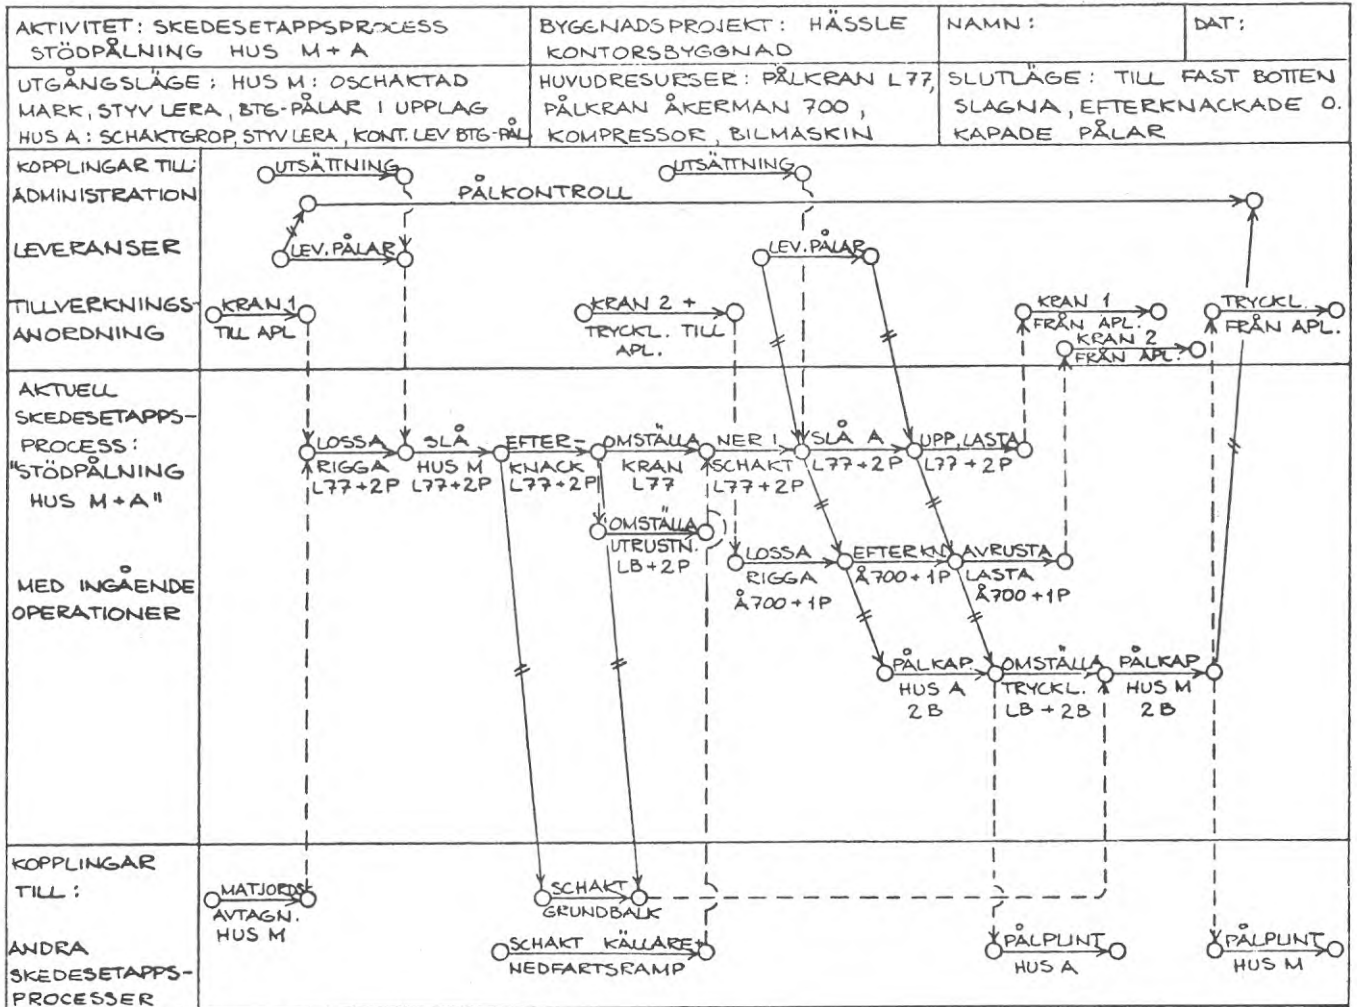 AKTIVITET: SKEDESETAPPSPROCESS
STÖDPÅLNING HUS M + A
BYGGNADSPROJEKT: HÄSSLE
KONTORSBYGGNAD
NAMN:
DAT:
UTGÅNGSLÄGE: HUS M: OSCHAKTAD
MARK, STYV LERA, BTG-PÅLAR I UPPLAG
HUS A: SCHAKTGROP, STYV LERA, KONT. LEV BTG-PÅL
HUVUDRESURSER: PÅLKRAN L77,
PÅLKRAN ÅKERMAN 700,
KOMPRESSOR, BILMASKIN
SLUTLÄGE: TILL FAST BOTTEN
SLAGNA, EFTERKNACKADE O.
KAPADE PÅLAR
KOPPLINGAR TILL:
ADMINISTRATION
UTSÄTTNING
UTSÄTTNING
PÅLKONTROLL
LEVERANSER
LEV. PÅLAR
LEV. PÅLAR
TILLVERKNINGS-
ANORDNING
KRAN 1
TILL APL
KRAN 2 +
TRYCKL. TILL
APL.
KRAN 1
FRÅN APL.
KRAN 2
FRÅN APL.
TRYCKL.
FRÅN APL.
AKTUELL
SKEDESETAPPS-
PROCESS:
"STÖDPÅLNING
HUS M + A"
LOSSA
RIGGA
L77+2P
SLÅ
HUS M
L77+2P
EFTER-
KNACK
L77+2P
OMSTÄLLA
KRAN
L77
NER I
SCHAKT
L77+2P
SLÅ A
L77+2P
UPP, LASTA
L77+2P
OMSTÄLLA
UTRUSTN.
LB+2P
MED INGÅENDE
OPERATIONER
LOSSA
RIGGA
Å700+1P
EFTERKN
Å700+1P
AVRUSTA
LASTA
Å700+1P
PÅLKAP.
HUS A
2B
OMSTÄLLA
TRYCKL.
LB+2B
PÅLKAP
HUS M
2B
KOPPLINGAR
TILL:
MATJORDS-
AVTAGN.
HUS M
SCHAKT
GRUNDBALK
ANDRA
SKEDESETAPPS-
PROCESSER
SCHAKT KÄLLARE+
NEDFARTSRAMP
PÅLPLINT
HUS A
PÅLPLINT
HUS M